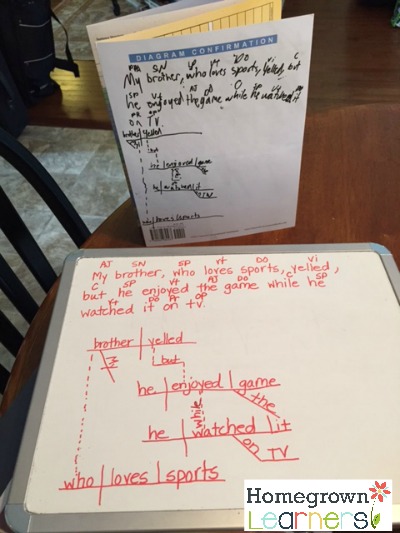 DIAGRAM CONFIRMATION
SN Vt DO C
My brother, who loves sports, yelled, but
SP Vt AJ DO C
he enjoyed the game while he watched it
on TV.
brother yelled
but
he enjoyed game
he watched it
who loves sports
AJ SN SP Vt DO Vi
My brother, who loves sports, yelled,
C SP Vt AJ DO C SP
but he enjoyed the game while he
Vt DO P OP
watched it on TV.
brother yelled
My
but
he enjoyed game
the
while
he watched it
on
TV
who loves sports
Homegrown
Learners